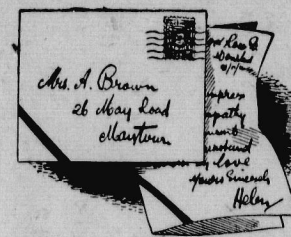 Mrs. A. Brown
26 May Road
Maytown
Road
mpress
mpathy
love
Yours Sincerely
Helen